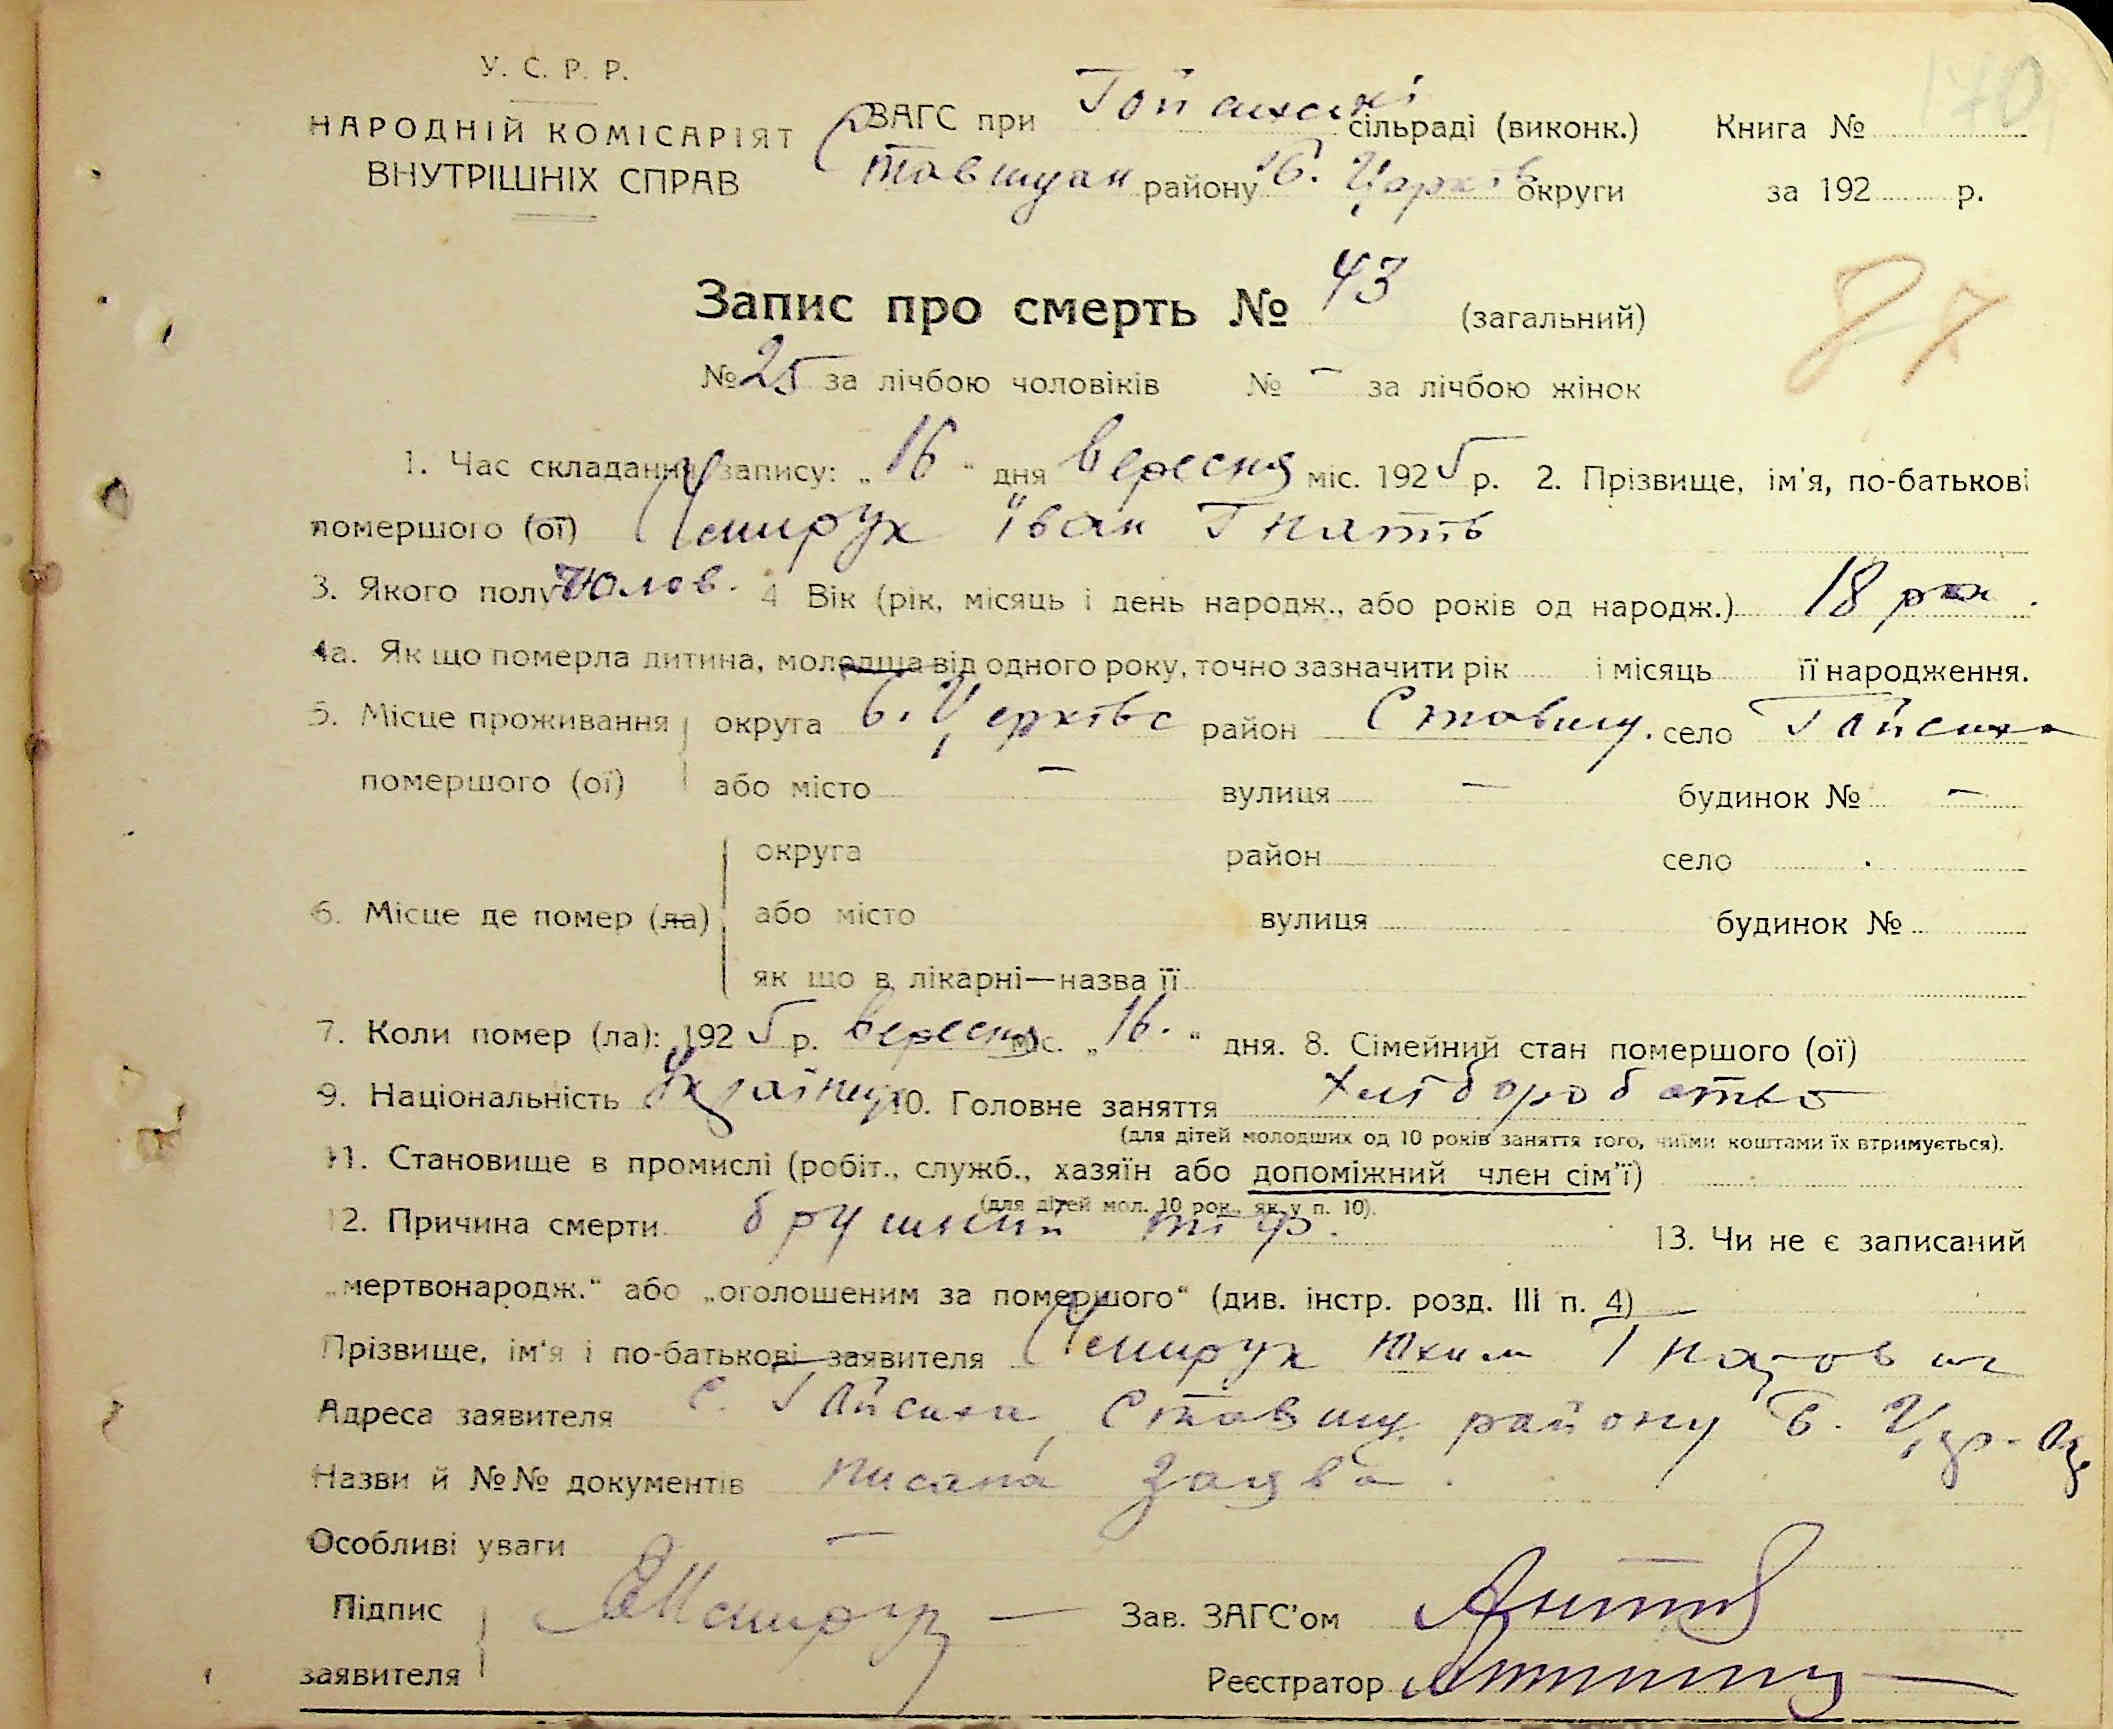 170
У. С. Р. Р.
НАРОДНІЙ КОМІСАРІЯТ
ВНУТРІШНІХ СПРАВ
ЗАГС при сільраді (виконк.) Книга №
Ставищан району Б. Церків округи за 192 р.
Запис про смерть № 43 (загальний)
87
№ 25 за лічбою чоловіків № – за лічбою жінок
1. Час складання запису: „ 16 “ дня вересня міс. 192 5 р. 2. Прізвище, ім'я, по-батькові
помершого (ої) Іван Гнатів
3. Якого полу Чолов. 4 Вік (рік, місяць і день народж., або років од народж.) 18 рок.
4а. Як що померла дитина, молодша від одного року, точно зазначити рік і місяць її народження.
5. Місце проживання округа Б. Церківс район Ставищ. село Гайсиха
помершого (ої) або місто – вулиця – будинок № –
округа район село
6. Місце де помер (ла) або місто вулиця будинок №
як що в лікарні—назва її
7. Коли помер (ла): 192 5 р. вересня міс. „ 16. “ дня. 8. Сімейний стан помершого (ої)
9. Національність Українец 10. Головне заняття хліборобство
(для дітей молодших од 10 років заняття того, чиїми коштами їх втримується).
11. Становище в промислі (робіт., служб., хазяїн або допоміжний член сім'ї)
(для дітей мол. 10 рок., як у п. 10).
12. Причина смерти брушний тіф. 13. Чи не є записаний
„мертвонародж.“ або „оголошеним за помершого“ (див. інстр. розд. III п. 4) —
Прізвище, ім'я і по-батькові заявителя Юхим Гнатович
Адреса заявителя с. Гайсиха, Ставищ. району Б. Цер.
Назви й №№ документів писана заява.
Особливі уваги –
Підпис Зав. ЗАГС'ом
заявителя Реєстратор